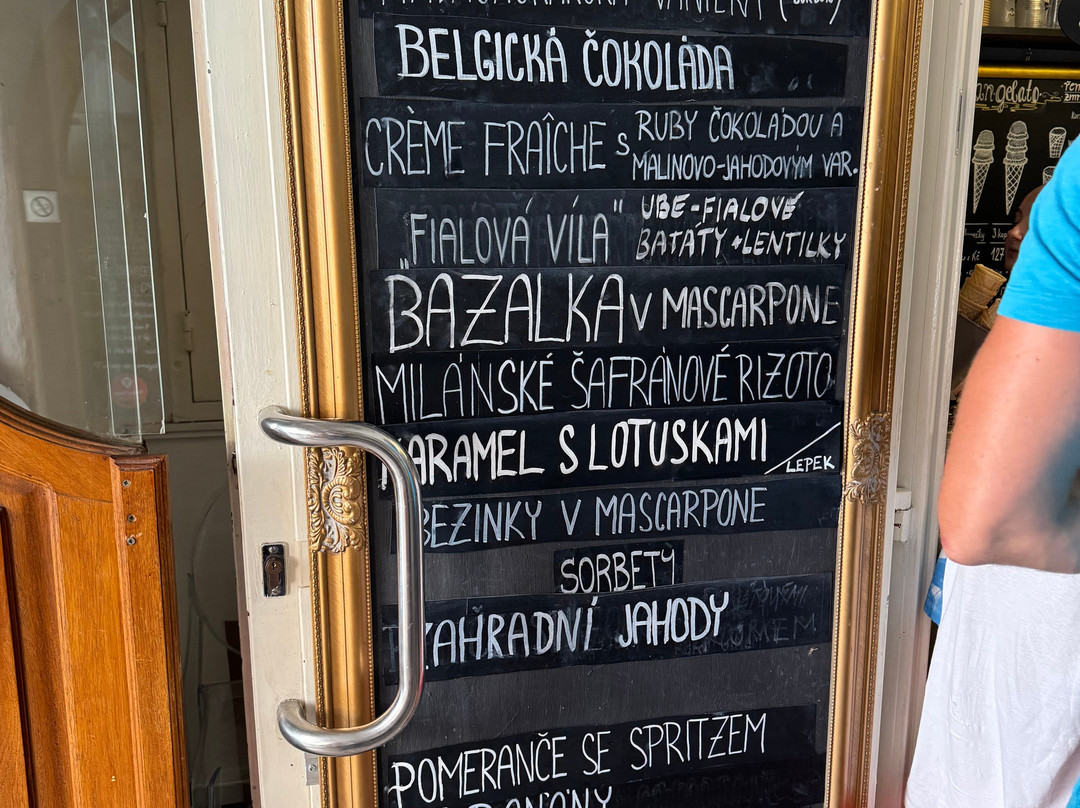 BELGICKÁ ČOKOLÁDA
CRÈME FRAÎCHE S RUBY ČOKOLÁDOU A
MALINOVO-JAHODOVÝM VAR.
"FIALOVÁ VÍLA" UBE-FIALOVÉ
BATÁTY + LENTILKY
BAZALKA V MASCARPONE
MILÁNSKÉ ŠAFRÁNOVÉ RIZOTO
KARAMEL S LOTUSKAMI
LEPEK
BEZINKY V MASCARPONE
SORBETY
ZAHRADNÍ JAHODY
POMERANČE SE SPRITZEM
gelato
127